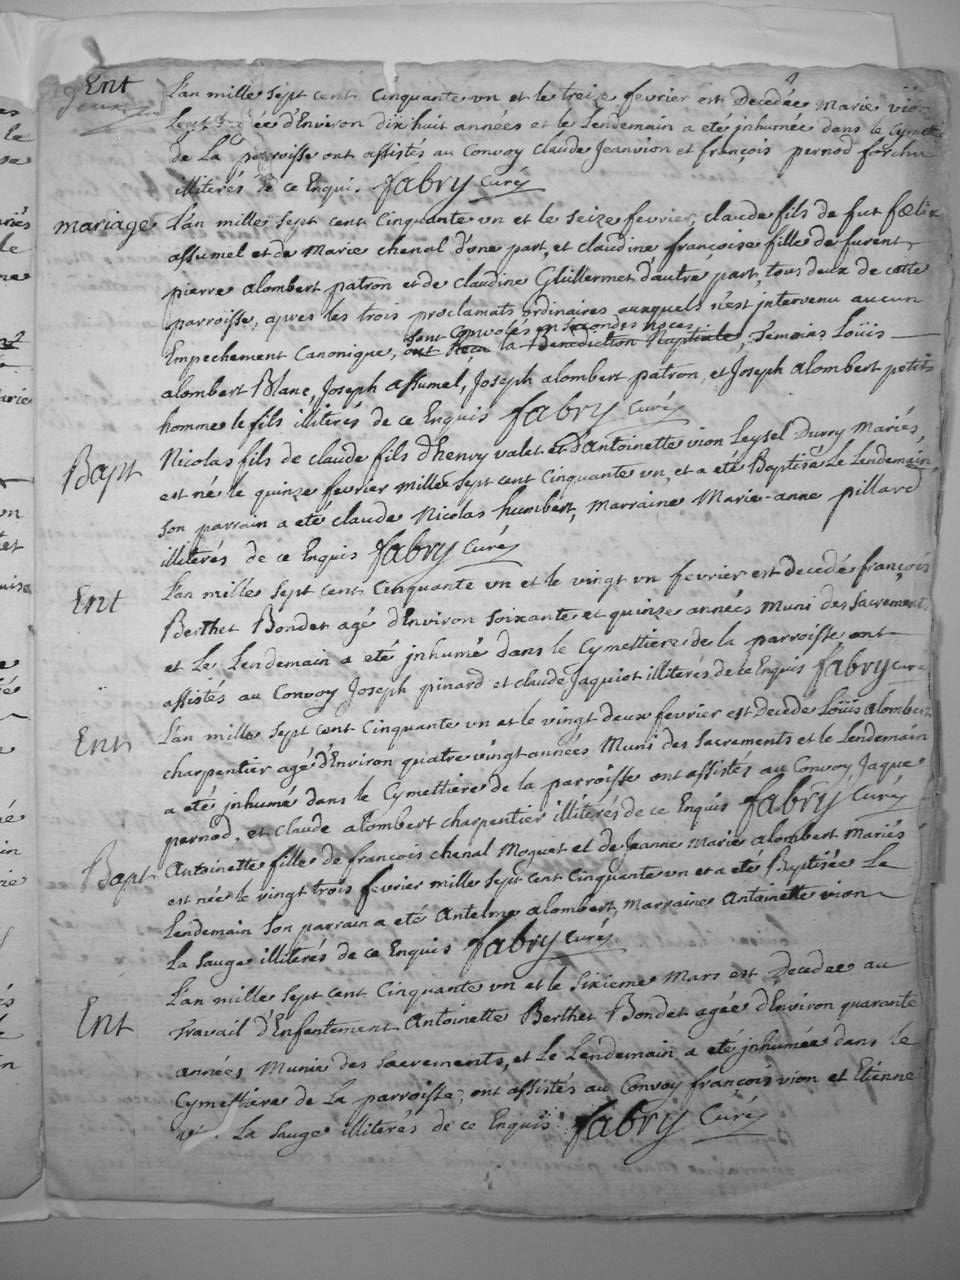 Ent
L'an mille sept cent Cinquante un et le treize fevrier est Decedée Marie vion
agée d'Environ dix huit années et le Lendemain a eté jnhumée dans le Cymettiere
de La parroisse ont assistés au Convoy Claude Jeanvion et françois pernod forchu
illiterés de ce Enquis. fabry Curé
mariage L'an mille sept cent Cinquante un et le seize fevrier, claude fils de fut fœlix
assumel et de Marie chenal d'une part, et claudine françoise fille de furent
pierre alombert patron et de claudine Gluillermet d'autre part, tous deux de cette
parroisse, apres les trois proclamats ordinaires ausquels n'est jntervenu aucun
sont Convolés en secondes noces
Empechement Canonique, ont Reçu la Benediction Nuptiale, Temoins Loüis
alombert Blanc, Joseph assumel, Joseph alombert patron, et Joseph alombert petit
homme le fils illiterés de ce Enquis fabry Curé
Bapt Nicolas fils de claude fils d'henry valet et d'Antoinette vion Leysel Durry Mariés,
est né le quinze fevrier mille sept cent Cinquante un, et a eté Baptisé Le Lendemain,
son parrain a eté claude Nicolas humbert, Marraine Marie-anne pillard
illiterés de ce Enquis fabry Curé
Ent L'an mille sept cent Cinquante un et le vingt un fevrier est decedé françois
Berthet Bondet agé d'Environ soixante et quinze années Muni des Sacrements
et Le Lendemain a eté jnhumé dans le Cymettiere de la parroisse ont
assistés au Convoy Joseph pinard et claude Jaquiot illiterés de ce Enquis fabry Curé
Ent L'an mille sept cent Cinquante un et le vingt deux fevrier est Decedé Loüis alombert
charpentier agé d'Environ quatre vingt années Muni des Sacrements et le Lendemain
a eté jnhumé dans le Cymettiere de la parroisse ont assistés au Convoy Jaque
pernod, et claude alombert charpentier illiterés de ce Enquis fabry Curé
Bapt Antoinette fille de françois chenal Moquet et de Jeanne Marie alombert Mariés
est née le vingt trois fevrier mille sept cent Cinquante un et a eté Baptisée Le
Lendemain son parrain a eté Antelme alombert, Marraine Antoinette vion
La sauge illiterés de ce Enquis fabry Curé
Ent L'an mille sept cent Cinquante un et le sixieme Mars est Decedée au
Travail d'Enfentement Antoinette Berthet Bondet agée d'Environ quarante
années, Munie des Sacrements, et Le Lendemain a eté jnhumée dans le
Cymettiere de La parroisse, ont assistés au Convoy françois vion et Etienne
La sauge illiterés de ce Enquis fabry Curé